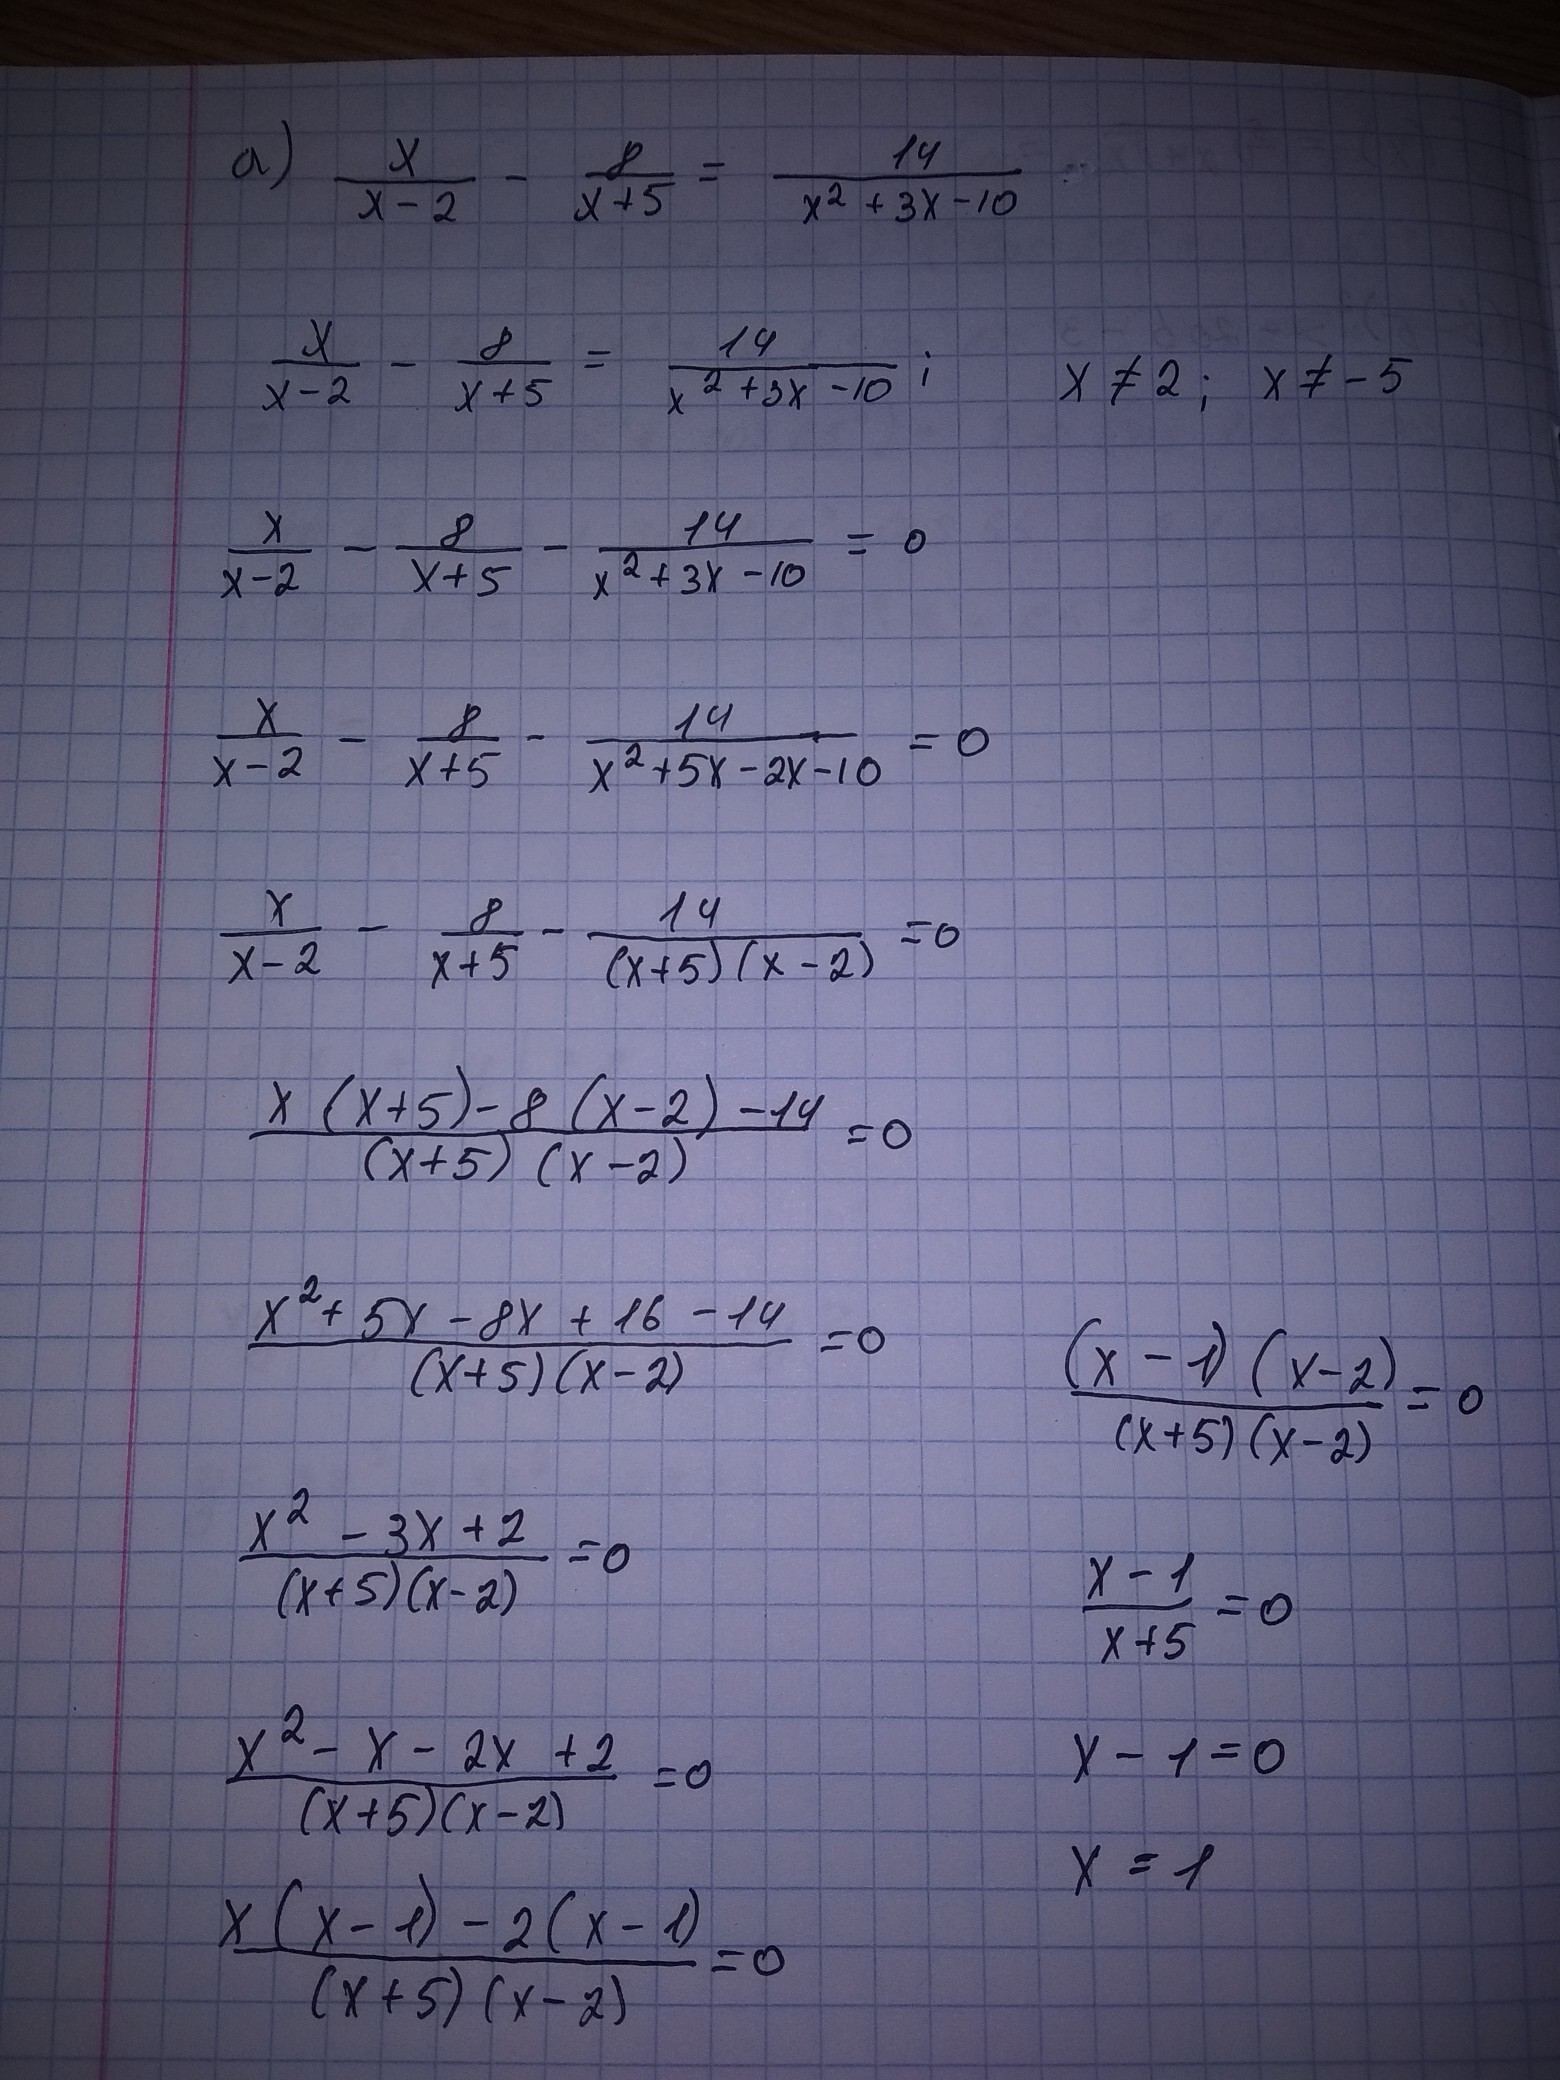 а) x/(x-2) - 8/(x+5) = 14/(x²+3x-10)
x/(x-2) - 8/(x+5) = 14/(x²+3x-10); x≠2; x≠-5
x/(x-2) - 8/(x+5) - 14/(x²+3x-10) = 0
x/(x-2) - 8/(x+5) - 14/(x²+5x-2x-10) = 0
x/(x-2) - 8/(x+5) - 14/((x+5)(x-2)) = 0
(x(x+5)-8(x-2)-14)/((x+5)(x-2)) = 0
(x²+5x-8x+16-14)/((x+5)(x-2)) = 0
(x²-3x+2)/((x+5)(x-2)) = 0
(x²-x-2x+2)/((x+5)(x-2)) = 0
(x(x-1)-2(x-1))/((x+5)(x-2)) = 0
((x-1)(x-2))/((x+5)(x-2)) = 0
(x-1)/(x+5) = 0
x-1=0
x=1